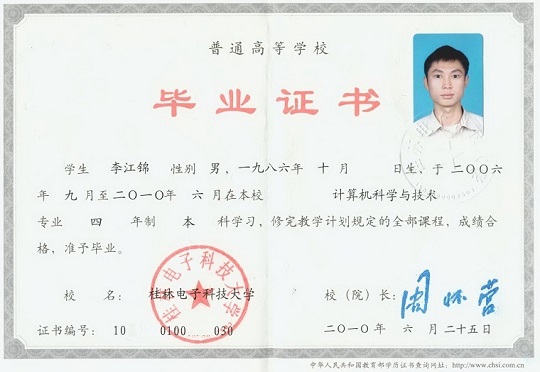 普通高等学校
毕业证书
学生 李江锦 性别 男，一九八六年 十月 日生，于二〇〇六
年 九月至二〇一〇年 六月在本校 计算机科学与技术
专业 四 年制 本 科学习，修完教学计划规定的全部课程，成绩合
格，准予毕业。
校 名： 桂林电子科技大学 校（院）长： 周怀营
桂林电子科技大学
证书编号：10 0100 030 二〇一〇年 六月二十五日
中华人民共和国教育部学历证书查询网址：http://www.chsi.com.cn